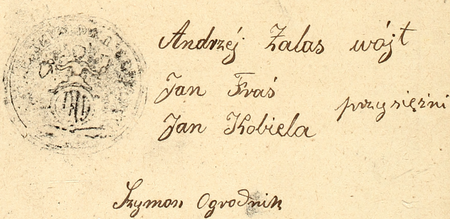 Andrzéj Zalas wójt
Jan Fraś
Jan Kobiela
przysiężni
Szymon Ogrodnik